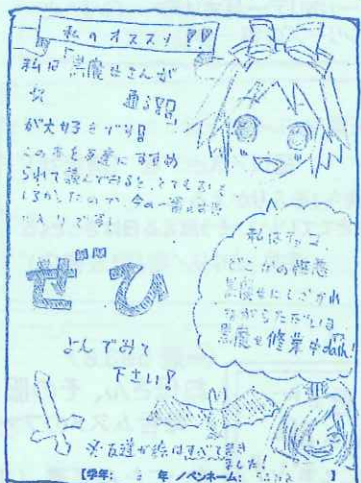 私のオススメ!!
私は「黒魔女さんが
通る!!」
が大好きです!!
この本を友達にすすめ
られて読んでみると、とてもおもし
ろかったので、今の一番の
入りです!
ぜひ
よんでみて
下さい!
私はチョコ
どこかの性悪
黒魔女にしごかれ
ながらただいま
黒魔女修業中
※友達が絵はすべて書き
ました!
【学年: 年/ペンネーム: 】